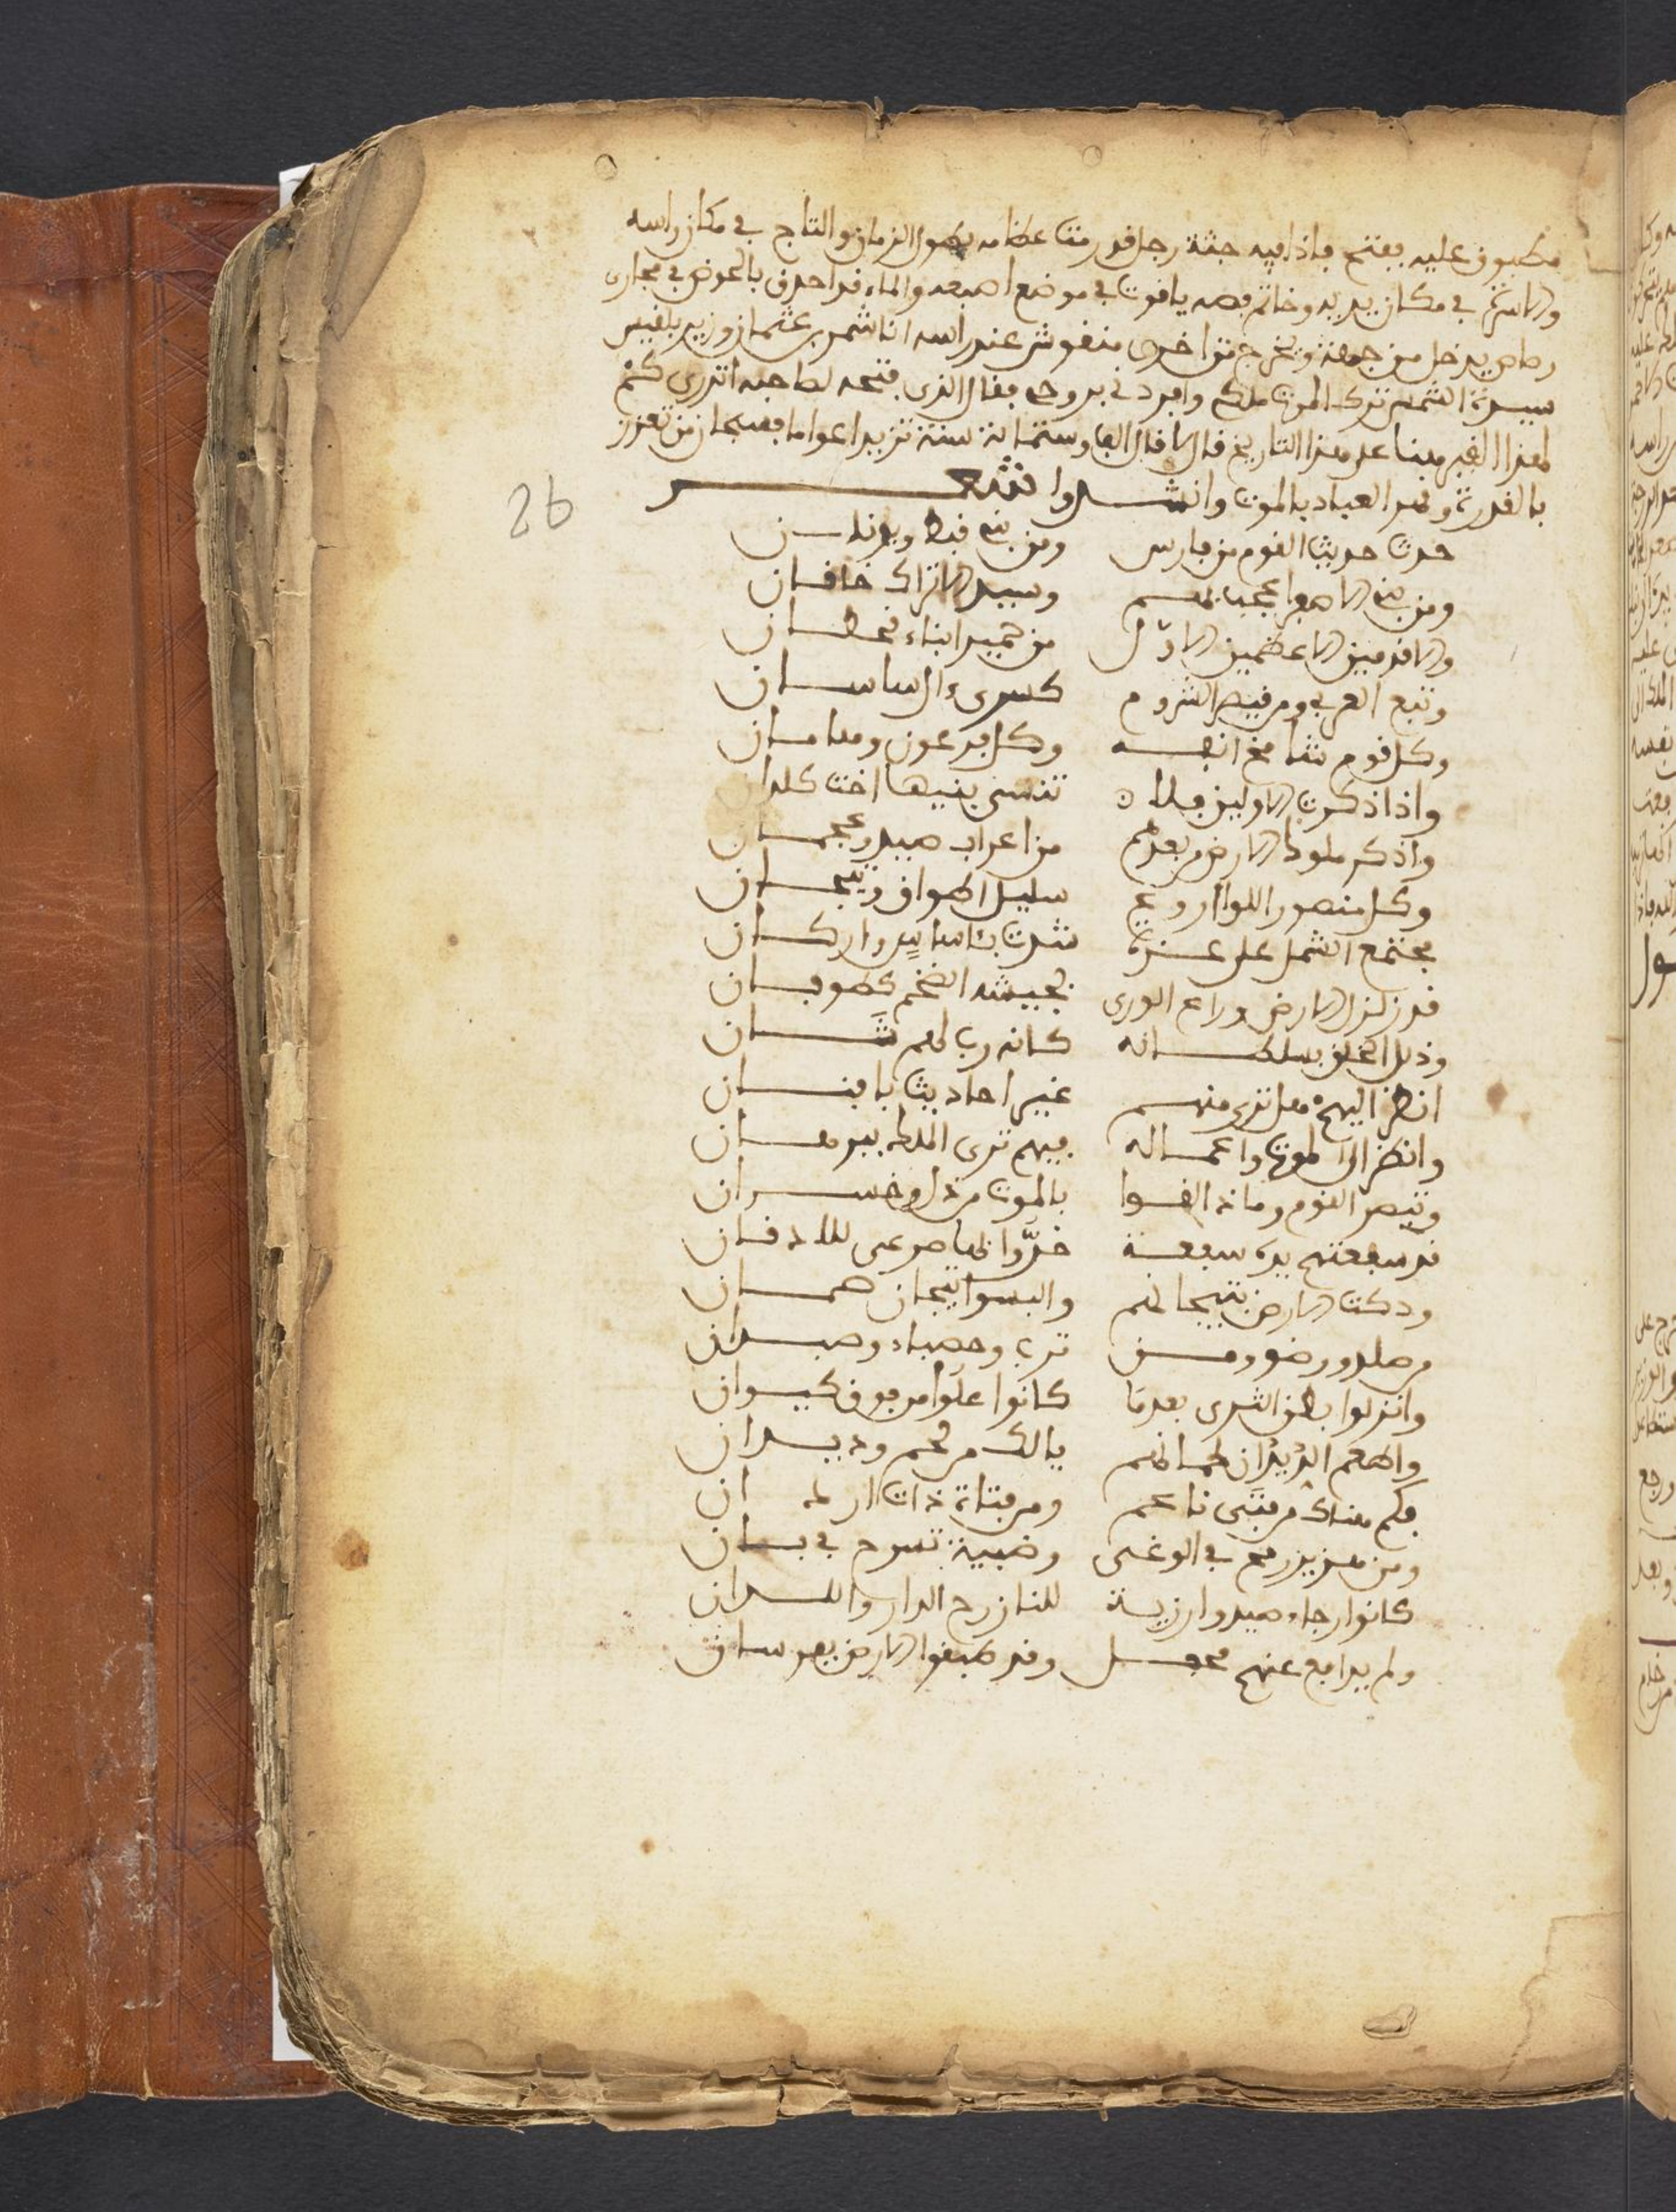 مطبوق عليه ففتح فاذا فيه جثة رجل قد رمت عظامه بطول الزمان والتاج في مكان راسه
والاسرة في مكان يديه وخاتم فصه ياقوت في موضع اصبعه والماء قد احدق بالحوض في مجارى
رصاص يدخل من جهة ويخرج من اخرى منقوش عند راسه انا شمر بن عثمان وزير بلقيس
سيدة الشمس ترك الموت ملكي وافردني بروحي فقال الذى فتحه لصاحبه اتدرى كم
لهذا القبر هنا على هذا التاريخ قال لا قال الفا وستمائة سنة تزيد اعواما فسبحان من تعزز
بالقدرة وقهر العباد بالموت وانشدوا شعر
حدث حديث القوم من فارس ومن بني قبط ويونان
ومن بني الاصفر اعجب بهم وسيد الاتراك خاقان
والاقدمين الاعظمين الال من حمير ابناء قحطان
وتبع العرب ومر قيصر الروم كسرى ءال ساسان
وكل قوم شامخ انفه وكل فرعون وهامان
واذا ذكرت الاولين فلا تنسى بفيها اخت كلدان
واذكر ملوك الارض من بعدهم من اعراب صيد وعجمان
وكل منصور اللوا اروع سليل اطواق وتيجان
مجتمع الشمل على عزة شدت باساس واركان
قد زلزل الارض وراع الورى بجيشه الضخم كطوفان
وذل الخلق بسلطانه كانه رب لهم ثان
انظر اليهم هل ترى منهم غير احاديث بافنان
وانظر الى الموت واعماله فيهم ترى الملك ببرهان
وتبصر القوم وما ذا لقوا بالموت من ذل وخسران
قد سفعتهم يده سفعة خروا لها صرعى للاذقان
ودكت الارض بتيجانهم والبسوا تيجان همان
من صلد ورضو ومن ترب وحصباء وصبدان
وانزلوا بطن الثرى بعدما كانوا علوا من فوق كيوان
واطعم الديدان لحمانهم يالك من لحم وديدان
فكم هناك من فتى ناعم ومن فتاة ذات ار ان
ومن هزبر في الوغى وظبية تسرح في بان
كانوا رجاء صيد وارزية للنازح الدار وللدان
ولم يدافع عنهم محفل وقد طبقوا الارض بفرسان
26